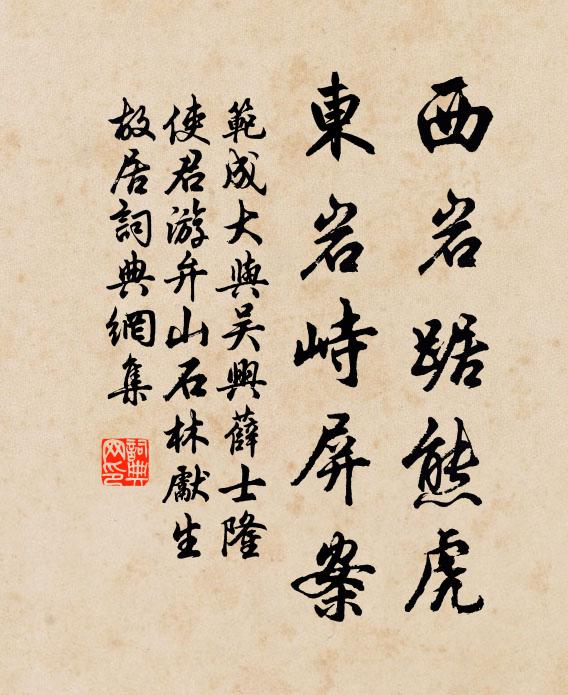 西岩踞熊虎
東岩峙屏案
範成大與吴興薛士隆
使君游弁山石林獻生
故居詞典網集
詞典网印